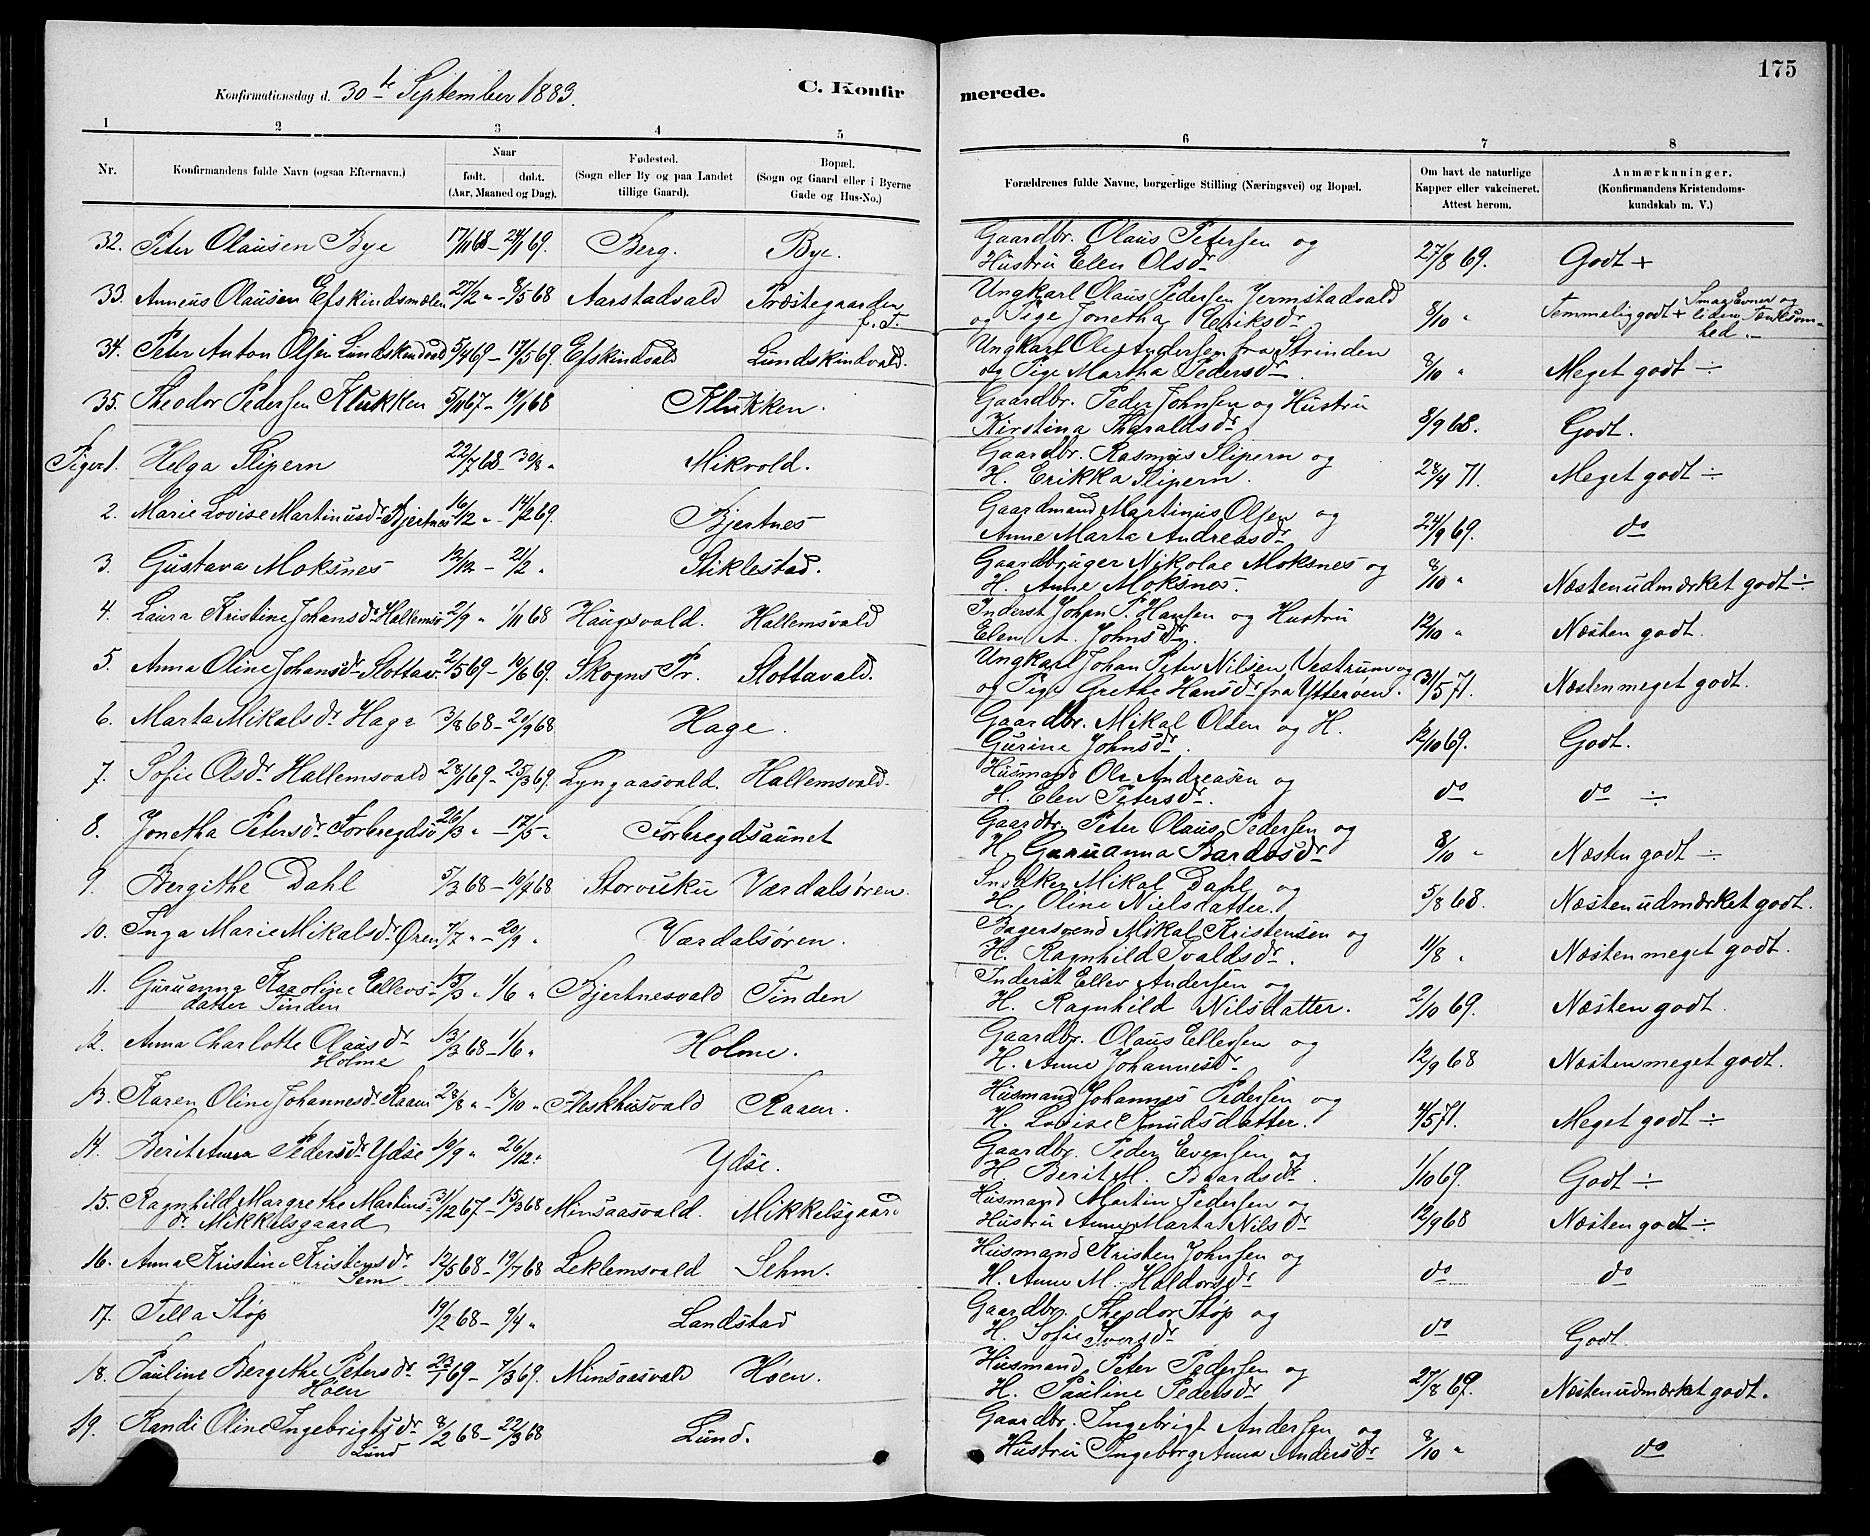 175
Konfirmationsdag d. 30te September 1883.
C. Konfirmerede.
1 2 3 4 5 6 7 8
Nr. Konfirmandens fulde Navn (ogsaa Efternavn.) Naar født. døbt. (Aar, Maaned og Dag). Fødested. (Sogn eller By og paa Landet tillige Gaard). Bopæl. (Sogn og Gaard eller i Byerne Gade og Hus-No.) Forældrenes fulde Navne, borgerlige Stilling (Næringsvei) og Bopæl. Om havt de naturlige Kapper eller vakcineret. Attest herom. Anmærkninger. (Konfirmandens Kristendomskundskab m. V.)
32. Peter Olausen Bye 17/11 68 – 24/1 69. Berg. Bye. Gaardbr. Olaus Petersen og Hustru Elen Olsdr 27/8 69. Godt +
33. Anneus Olausen Efskindsmælen 27/2 „ – 8/5 68 Aarstadvald Præstegaarden f. T. Ungkarl Olaus Pedersen Jermstadvald og Pige Jonetha Eriksdr 8/10 „ Temmelig godt + Smaa Evner og liden Tænksomhed. –
34. Peter Anton Olsen Lundskindvald 5/4 69 – 17/5 69. Efskindvald Lundskindvald. Ungkarl Ole Andersen fra Strinden og Pige Martha Pedersdr 8/10 „ Meget godt ÷
35. Theodor Pedersen Klukken 5/11 67 – 19/1 68 Klukken. Gaardbr. Peder Johnsen og Hustru Kirstina Tharaldsdr 8/9 68. Godt.
Piger 1. Helga Slipern 22/7 68 – 30/8 „ Mikvold. Gaardbr. Rasmus Slipern og H. Erikka Slipern. 28/4 71. Meget godt ÷
2. Marie Lovise Martinusdr Bjertnes 16/12 „ – 14/2 69. Bjertnes Gaardmand Martinus Olsen og Anne Marta Andreasdr 24/9 69. do
3. Gustava Moksnes 12/12 – 21/2 „ Stiklestad. Gaardbruger Nikolae Moksnes og H. Anne Moksnes. 8/10 „ Næsten udmærket godt ÷
4. Laura Kristine Johansdr Hallemsv 2/9 „ 1/11 68 Haugsvald. Hallemsvald Inderst Johan P. Hansen og Hustru Elen A. Johnsdr. 12/10 „ Næsten godt.
5. Anna Oline Johansdr Slottav. 2/5 69 – 10/6 69. Skogns Pr. Slottavald. Ungkarl Johan Peter Nilsen Vestrum og og Pige Grethe Hansdr fra Ytterøen. 31/5 71. Næsten meget godt.
6. Marta Mikalsdr Hage 3/8 68 – 20/9 68 Hage. Gaardbr. Mikal Olsen og H. Gurine Johnsdr. 12/10 69. Godt.
7. Sofie Olsdr Hallemsvald 28/1 69 – 25/3 69. Lyngaasvald. Hallemsvald. Husmand Ole Andreasen og H. Elen Petersdr. do do ÷
8. Jonetha Petersdr Forbregdsv 26/3 „ – 17/5 „ Forbregdsaunet Gaardbr. Peter Olaus Pedersen og H. Guruanna Bardosdr 8/10 „ Næsten godt ÷
9. Bergithe Dahl 5/3 68 – 19/7 68 Storvuku Værdalsøren. Snedker Mikal Dahl og H. Oline Nielsdatter. 5/8 68. Næsten udmærket godt.
10. Inga Marie Mikalsdr Øren 7/7 „ – 20/9 „ Værdalsøren. Bagersvend Mikal Kristensen og H. Ragnhild Ivaldsdr. 11/8 „ Næsten meget godt.
11. Guruanna Karoline Ellevsdatter Tinden 15/3 „ 1/6 „ Bjertnesvald Tinden Inderst Ellev Andersen og H. Ragnhild Nilsdatter. 2/10 69. Næsten godt.
12. Anna Charlotte Olausdr Holme 13/3 68 – 1/6 „ Holme. Gaardbr. Olaus Ellevsen og H. Anne Johannesdr. 12/9 68 Næsten meget godt.
13. Karen Oline Johannesdr Raaen 28/8 „ – 18/10 „ Fleskhusvald Raaen. Husmand Johannes Pedersen og H. Lovise Knudsdatter. 4/5 71. Meget godt ÷
14. Berit Anna Pedersdr Ydse 19/9 „ 26/12 „ Ydse. Gaardbr. Peder Evensen og H. Berit M. Baardsdr. 1/10 69. Godt ÷
15. Ragnhild Margrethe Martinsdr Mikkelsgaard 31/12 67 – 15/3 68 Minsaasvald. Mikkelsgaard Husmand Martin Pedersen og Hustru Anne Marta Nilsdr 12/9 68 Næsten godt ÷
16. Anna Kristine Kristensdr Sem 12/5 68 – 19/7 68 Leklemsvald Sehm. Husmand Kristen Johnsen og H. Anne M. Haldorsdr do do
17. Tella Støp 19/2 68 – 9/4 „ Landstad Gaardbr. Theodor Støp og H. Sofie Iversdr do Godt.
18. Pauline Bergithe Petersdr Høen 23/1 69 – 7/3 69. Minsaasvald Høen. Husmand Peter Pedersen og H. Pauline Pedersdr 27/8 69. Næsten udmærket godt.
19. Randi Oline Ingebrigtsdr Lund 8/2 68 – 22/3 68 Lund. Gaardbr. Ingebrigt Andersen og Hustru Ingeborg Anna Andersdr 8/10 „ do